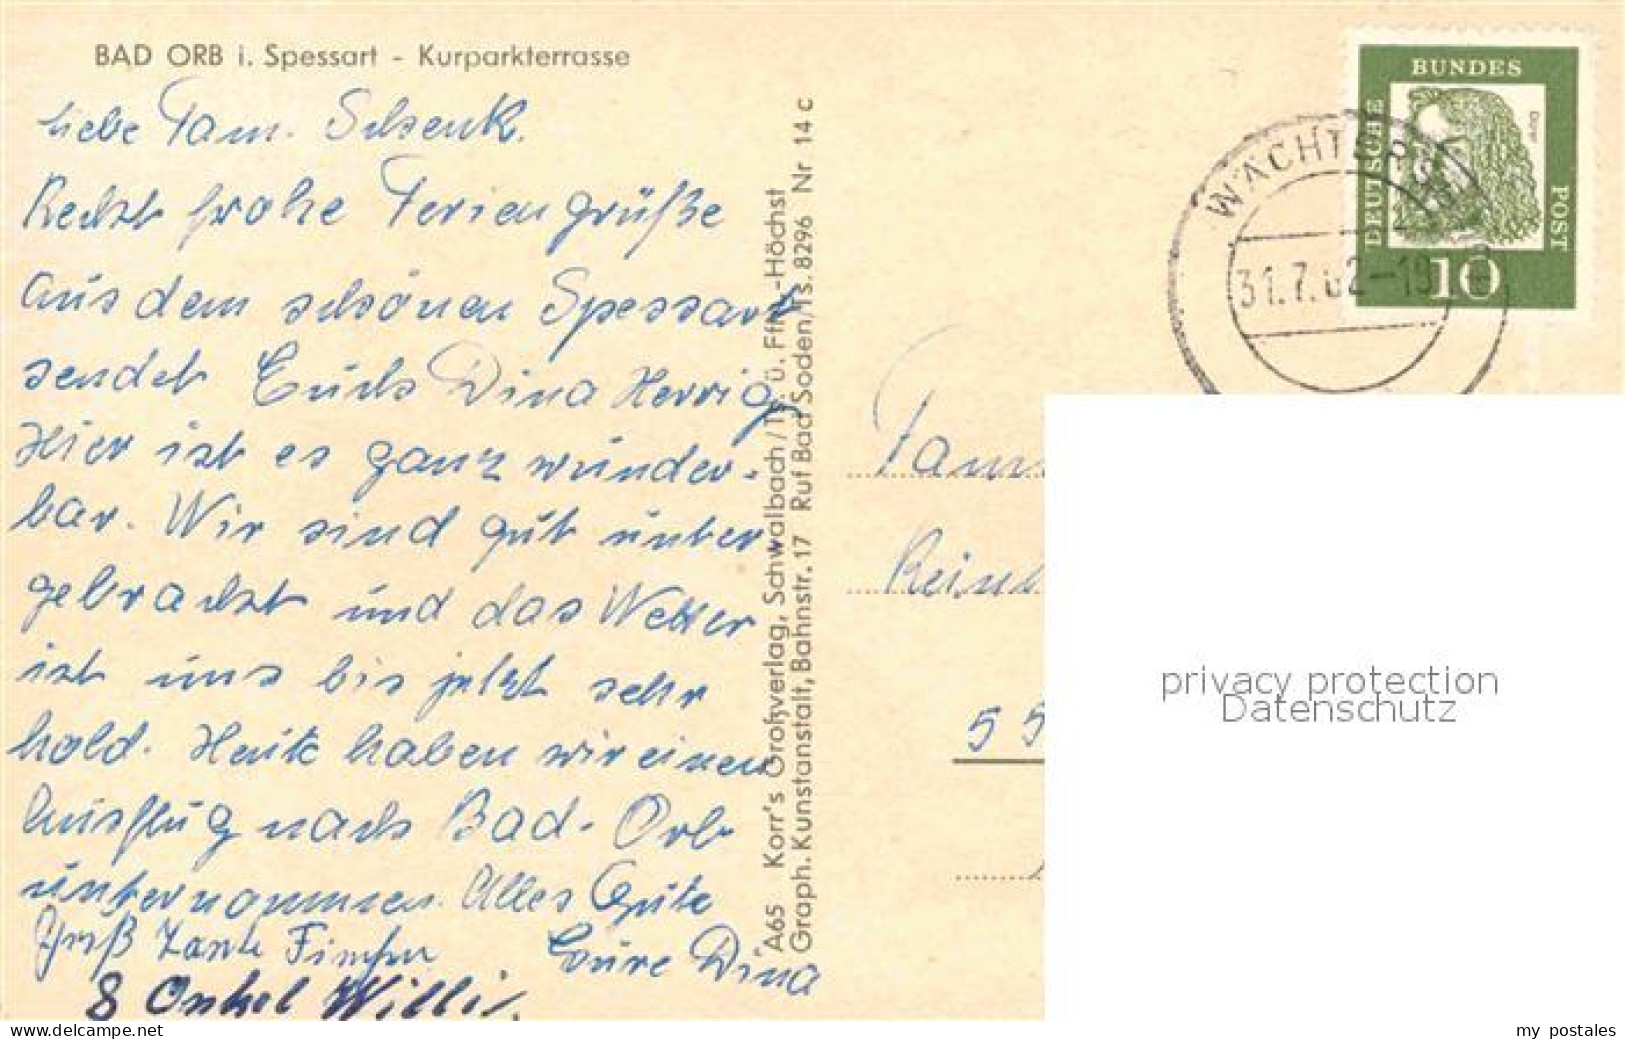 BAD ORB i. Spessart - Kurparkterrasse
Liebe Fam. Schenk.
Recht frohe Feriengrüße
aus dem schönen Spessart
sendet Euch Dina Herrig
Hier ist es ganz wunder-
bar. Wir sind gut unter
gebracht und das Wetter
ist uns bis jetzt sehr
hold. Heute haben wir einen
Ausflug nach Bad-Orb
unternommen. Alles Gute
Gruß Tante
Eure Dina
& Onkel Willi.
A65 Korr's Großverlag, Schwalbach/Ts. ü. Ffm.-Höchst
Graph. Kunstanstalt, Bahnstr. 17 Ruf Bad Soden/Ts. 8296 Nr 14 c
DEUTSCHE
BUNDES
POST
Dürer
10
WÄCHTERSB
31.7.62-19
Fam
Rein
55
privacy protection
Datenschutz
www.ansichtskartencenter.de
my postales